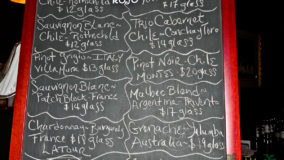 $12 glass
$17 glass
Sauvignon Blanc
Chile - Rothschild
$12 glass
Cabernet
Chile -
$14 glass
Pinot Grigio - ITALY
Villa Mura $13 glass
Pinot Noir - Chile
MONTES $20 glass
Sauvignon Blanc
Patch Block - France
$14 glass
Malbec Blend
Argentina -
$17 glass
Chardonnay - Burgundy
France $18 glass
LATOUR
Grenache - Yalumba
Australia - $19 glass